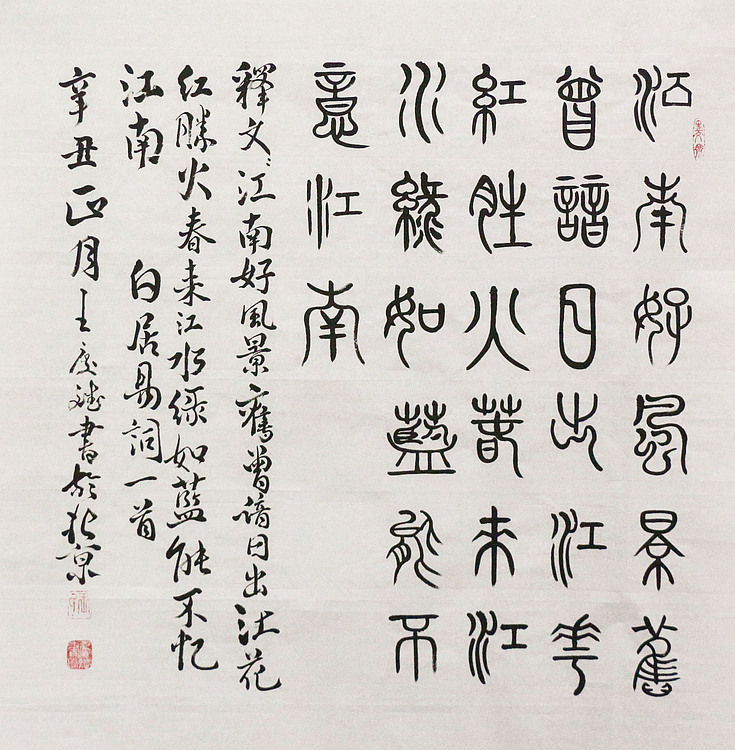 江南好風景舊
曾諳日出江華
紅胜火萅来江
水綠如藍能不
意江南
釋文：江南好風景舊曾諳日出江花
紅勝火春来江水綠如藍能不忆
江南 白居易詞一首
辛丑正月王書於北京